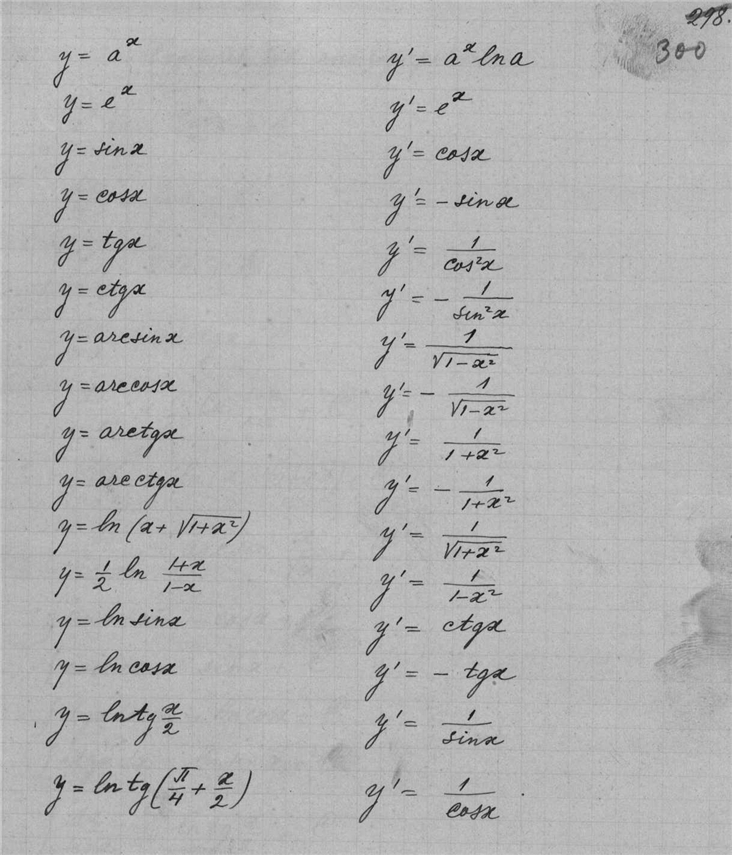 298.
300
y = aˣ y' = aˣ ln a
y = eˣ y' = eˣ
y = sinx y' = cosx
y = cosx y' = - sinx
y = tgx y' = 1/cos²x
y = ctgx y' = - 1/sin²x
y = arcsinx y' = 1/√(1-x²)
y = arccosx y' = - 1/√(1-x²)
y = arctgx y' = 1/(1+x²)
y = arcctgx y' = - 1/(1+x²)
y = ln (x + √(1+x²)) y' = 1/√(1+x²)
y = 1/2 ln (1+x)/(1-x) y' = 1/(1-x²)
y = ln sinx y' = ctgx
y = ln cosx y' = - tgx
y = ln tg x/2 y' = 1/sinx
y = ln tg (π/4 + x/2) y' = 1/cosx